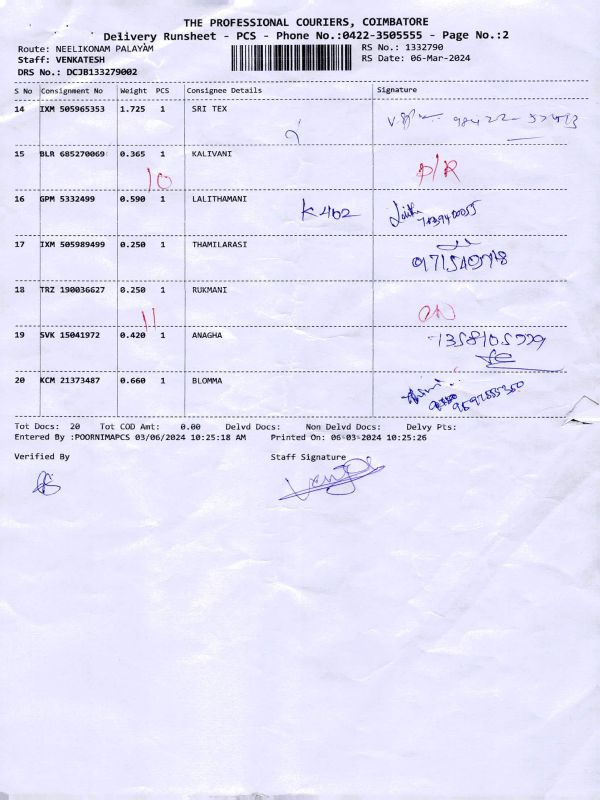 THE PROFESSIONAL COURIERS, COIMBATORE
Delivery Runsheet - PCS - Phone No.:0422-3505555 - Page No.:2
Route: NEELIKONAM PALAYAM
RS No.: 1332790
Staff: VENKATESH
RS Date: 06-Mar-2024
DRS No.: DCJB133279002
S No Consignment No Weight PCS Consignee Details Signature
14 IXM 505965353 1.725 1 SRI TEX
15 BLR 685270069 0.365 1 KALIVANI D/R
10
16 GPM 5332499 0.590 1 LALITHAMANI K402
17 IXM 505989499 0.250 1 THAMILARASI
18 TRZ 190036627 0.250 1 RUKMANI
11
19 SVK 15041972 0.420 1 ANAGHA
20 KCM 21373487 0.660 1 BLOMMA
Tot Docs: 20 Tot COD Amt: 0.00 Delvd Docs: Non Delvd Docs: Delvy Pts:
Entered By :POORNIMAPCS 03/06/2024 10:25:18 AM Printed On: 06-03-2024 10:25:26
Verified By Staff Signature